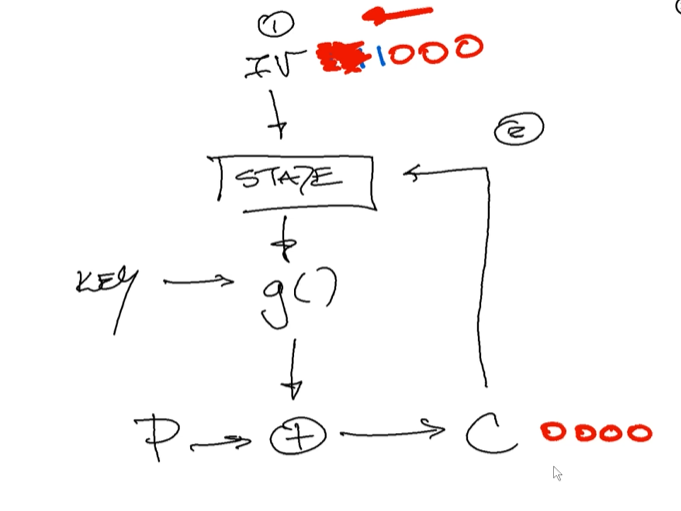 1
IV 1000
2
STATE
KEY g()
P + C 0000